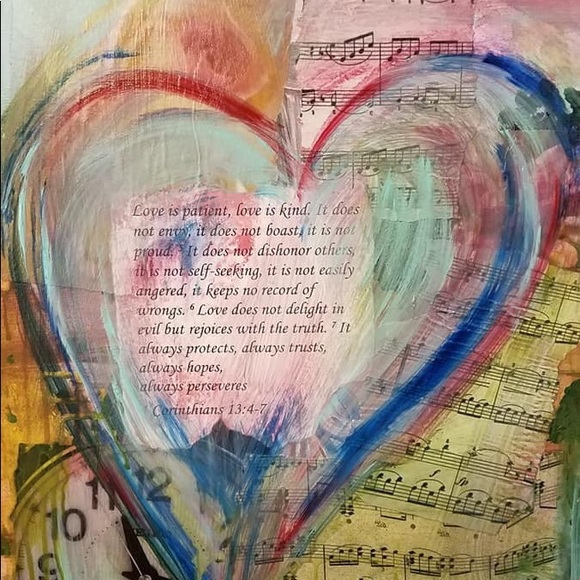 Love is patient, love is kind. It does
not envy, it does not boast, it is not
proud. ⁵ It does not dishonor others,
it is not self-seeking, it is not easily
angered, it keeps no record of
wrongs. ⁶ Love does not delight in
evil but rejoices with the truth. ⁷ It
always protects, always trusts,
always hopes,
always perseveres
Corinthians 13:4-7
11 12
10
9